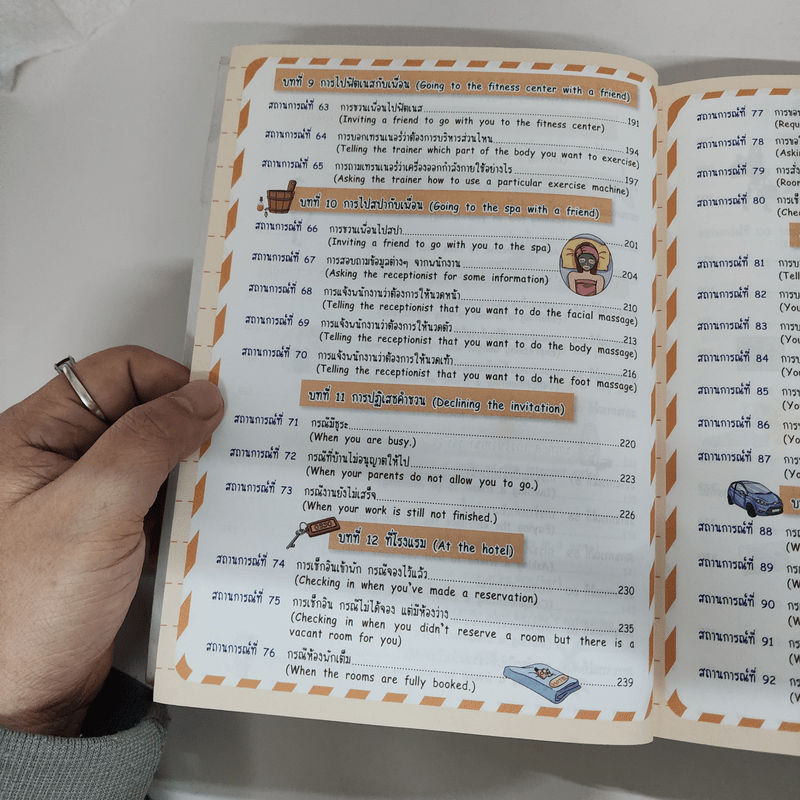 บทที่ 9 การไปฟิตเนสกับเพื่อน (Going to the fitness center with a friend)
สถานการณ์ที่ 63 การชวนเพื่อนไปฟิตเนส 191
(Inviting a friend to go with you to the fitness center)
สถานการณ์ที่ 64 การบอกเทรนเนอร์ว่าต้องการบริหารส่วนไหน 194
(Telling the trainer which part of the body you want to exercise)
สถานการณ์ที่ 65 การถามเทรนเนอร์ว่าเครื่องออกกำลังกายใช้อย่างไร 197
(Asking the trainer how to use a particular exercise machine)
บทที่ 10 การไปสปากับเพื่อน (Going to the spa with a friend)
สถานการณ์ที่ 66 การชวนเพื่อนไปสปา 201
(Inviting a friend to go with you to the spa)
สถานการณ์ที่ 67 การสอบถามข้อมูลต่างๆ จากพนักงาน 204
(Asking the receptionist for some information)
สถานการณ์ที่ 68 การแจ้งพนักงานว่าต้องการให้นวดหน้า 210
(Telling the receptionist that you want to do the facial massage)
สถานการณ์ที่ 69 การแจ้งพนักงานว่าต้องการให้นวดตัว 213
(Telling the receptionist that you want to do the body massage)
สถานการณ์ที่ 70 การแจ้งพนักงานว่าต้องการให้นวดเท้า 216
(Telling the receptionist that you want to do the foot massage)
บทที่ 11 การปฏิเสธคำชวน (Declining the invitation)
สถานการณ์ที่ 71 กรณีมีธุระ 220
(When you are busy.)
สถานการณ์ที่ 72 กรณีที่บ้านไม่อนุญาตให้ไป 223
(When your parents do not allow you to go.)
สถานการณ์ที่ 73 กรณีงานยังไม่เสร็จ 226
(When your work is still not finished.)
บทที่ 12 ที่โรงแรม (At the hotel)
สถานการณ์ที่ 74 การเช็กอินเข้าพัก กรณีจองไว้แล้ว 230
(Checking in when you've made a reservation)
สถานการณ์ที่ 75 การเช็กอิน กรณีไม่ได้จอง แต่มีห้องว่าง 235
(Checking in when you didn't reserve a room but there is a
vacant room for you)
สถานการณ์ที่ 76 กรณีห้องพักเต็ม 239
(When the rooms are fully booked.)
สถานการณ์ที่ 77
สถานการณ์ที่ 78
สถานการณ์ที่ 79
สถานการณ์ที่ 80
สถานการณ์ที่ 81
สถานการณ์ที่ 82
(You
สถานการณ์ที่ 83
(You
สถานการณ์ที่ 84
(You
สถานการณ์ที่ 85
(You
สถานการณ์ที่ 86
(You
สถานการณ์ที่ 87
(You
สถานการณ์ที่ 88
สถานการณ์ที่ 89
สถานการณ์ที่ 90
สถานการณ์ที่ 91
สถานการณ์ที่ 92